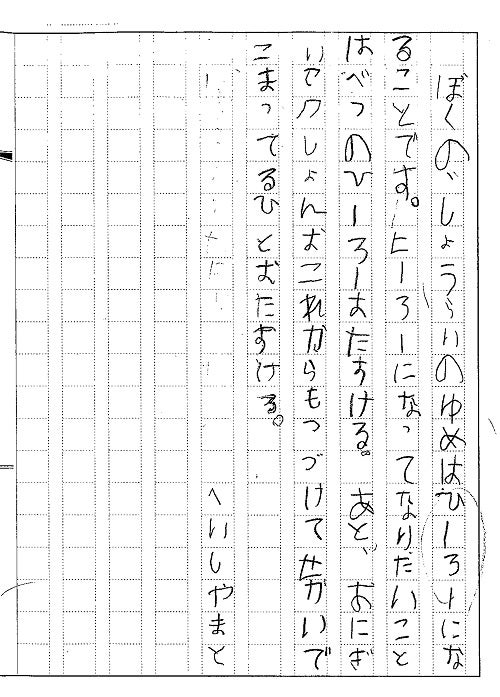 ぼくのしょうらいのゆめはひーろーにな
ることです。ヒーローになってなりだいこと
はべつのひーろーおたすける。あと、おにぎ
りアクしょんおこれからもつづけてせかいで
こまってるひとおたすける。
へいしやまと